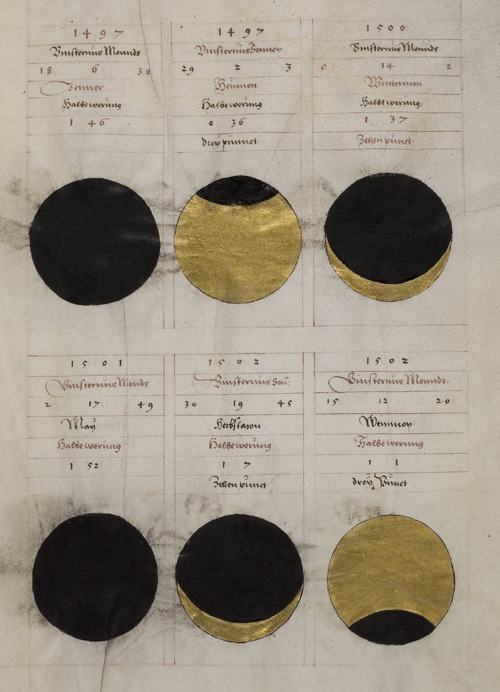 1497
Vinsternus Mounds
18 6 38
Jenner
Halbe werung
1 46
1497
Vinsternus Sonner
29 2 3
Heumon
Halbe werung
0 36
drey punct
1500
Vinsternus Mounds
5 14 2
Wintermon
Halbe werung
1 37
Zehen punct
1501
Vinsternus Mounds
2 17 49
May
Halbe werung
1 52
1502
Vinsternus
30 19 45
Herbstmon
Halbe werung
1 7
Zehen punct
1502
Vinsternus Mounds
15 12 20
Weinmon
Halbe werung
1 1
drey Punct